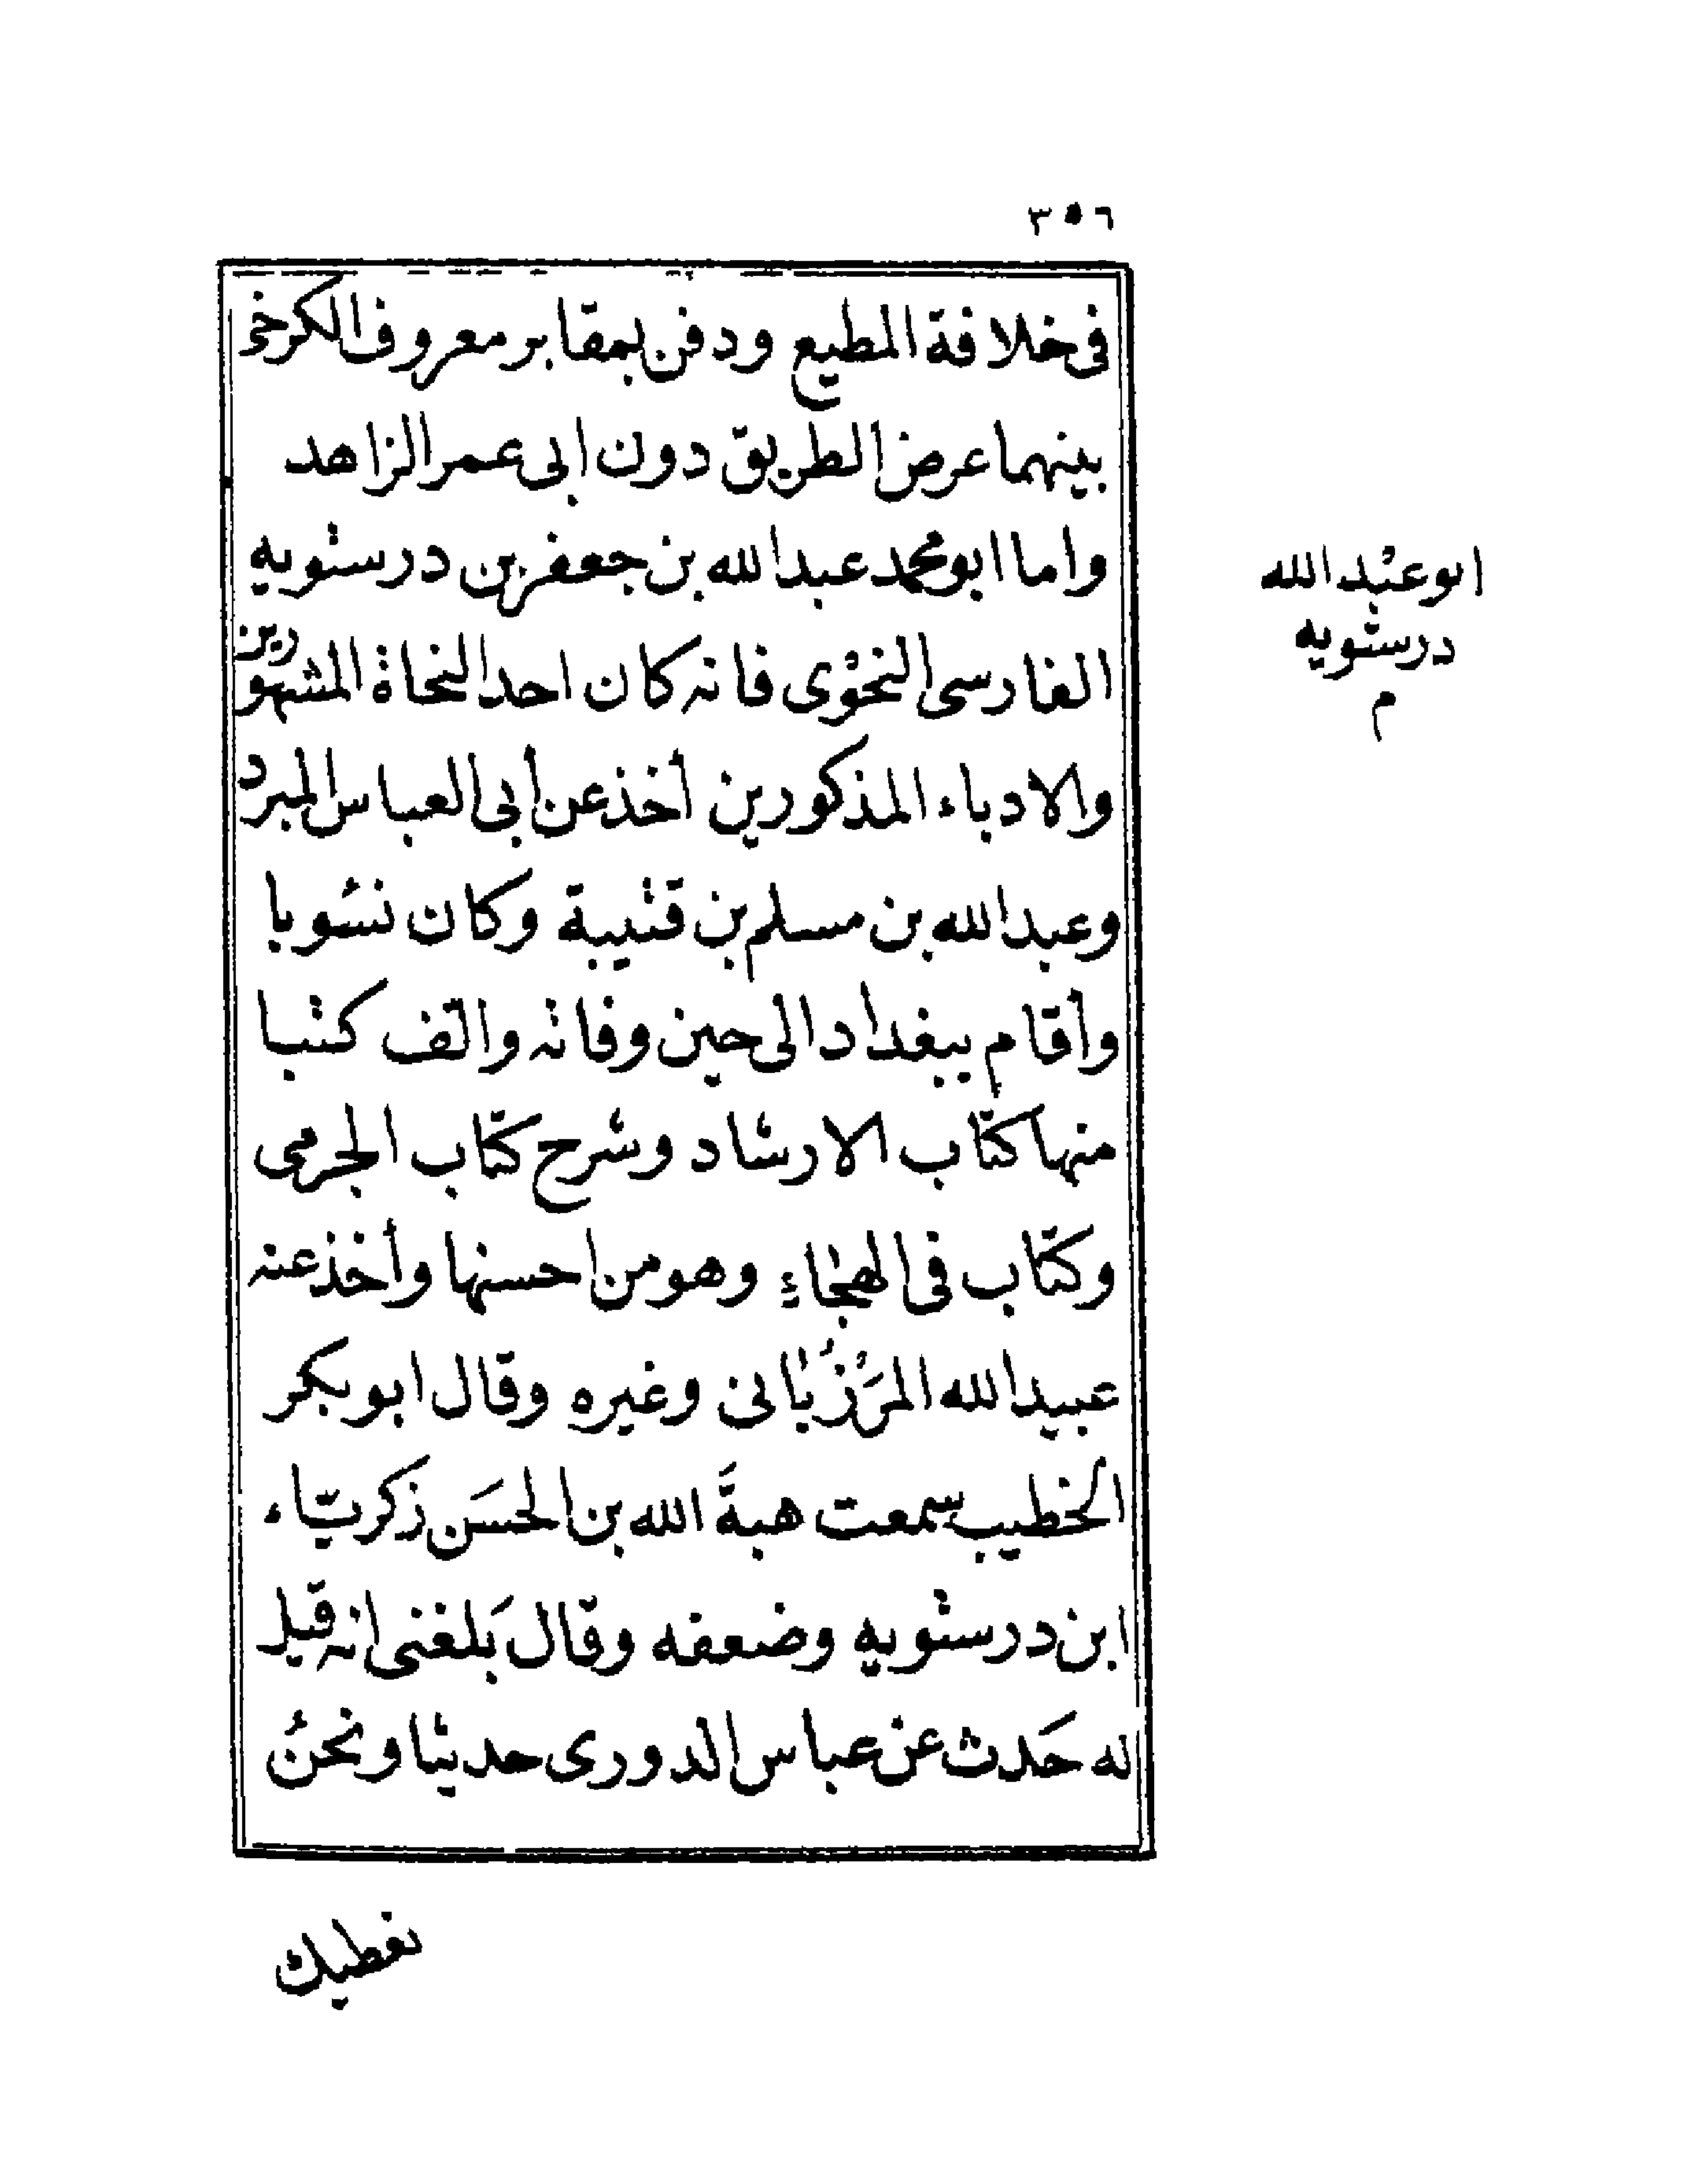 ٣٥٦
فى خلافة المطيع ودفن بمقابر معروف الكرخى
بينهما عرض الطريق دون ابى عمر الزاهد
واما ابو محمد عبد الله بن جعفر بن درستويه
الفارسى النحْوى فانه كان احد النحاة المشهورين
والادباء المذكورين أخذ عن أبى العباس المبرد
وعبد الله بن مسلم بن قتيبة وكان نسُويا
وأقام ببغداد الى حين وفاته والّف كتبا
منها كتاب الارشاد وشرح كتاب الجرمى
وكتاب فى الهجاءِ وهو من احسنها وأخذ عنه
عبيد الله المَرْزُبانى وغيره وقال ابو بكر
الخطيب سمعت هبةَ الله بن الحسَن زكريّاء
ابن درستويه وضعفه وقال بَلغنى انه قيل
له حَدث عن عباس الدورى حديثا ونحنُ
نعطيك
ابو عبْد الله
درستويه
م